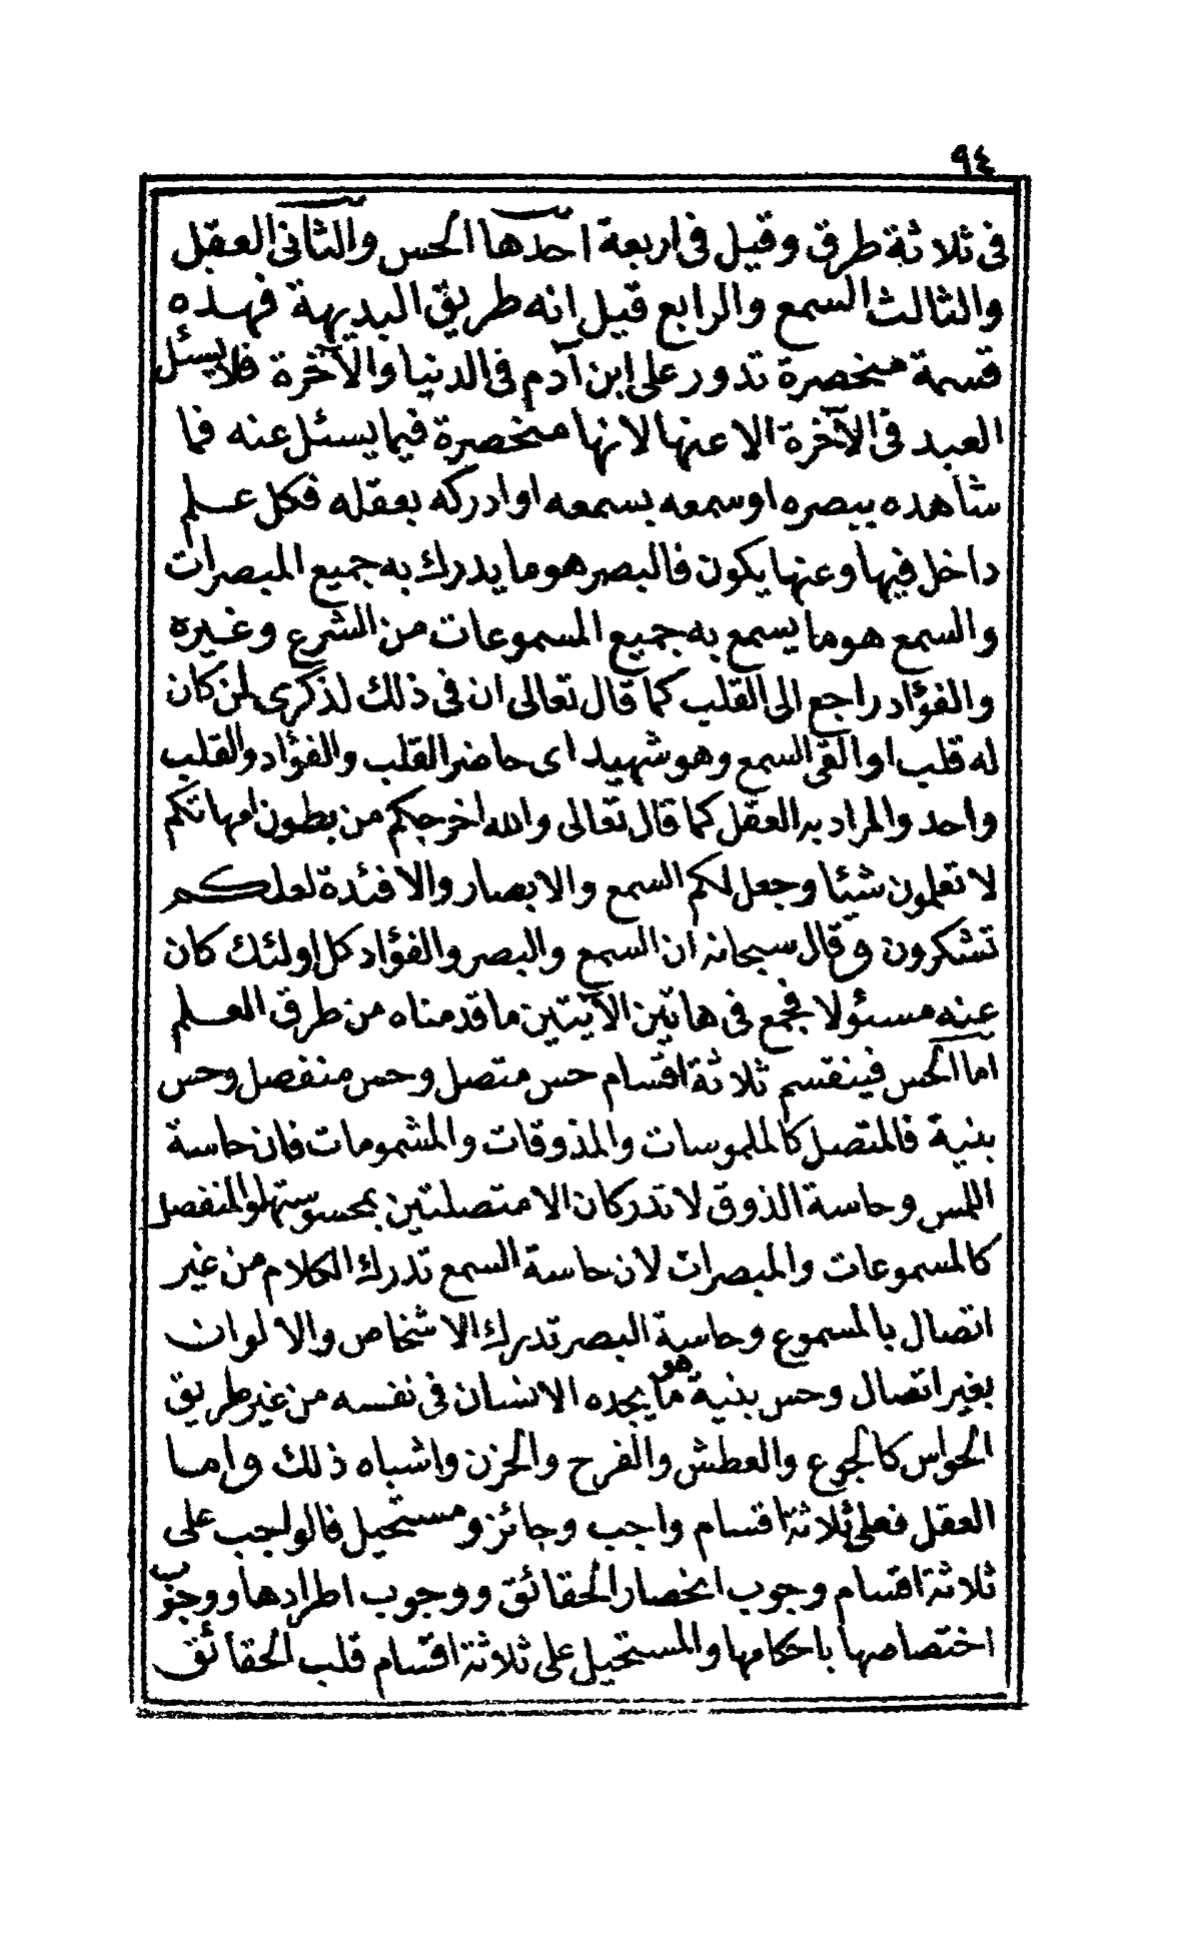 ٩٤
فى ثلاثة طرق وقيل فى اربعة احدها الحس والثانى العقل
والثالث السمع والرابع قيل انه طريق البديهة فهذه
قسمة منحصرة تدور على ابن آدم فى الدنيا والآخرة فلا يسئل
العبد فى الآخرة الا عنها لانها منحصرة فيما يسئل عنه فما
شاهده ببصره او سمعه بسمعه او ادركه بعقله فكل علم
داخل فيها وعنها يكون فالبصر هو ما يدرك به جميع المبصرات
والسمع هو ما يسمع به جميع المسموعات من الشرع وغيره
والفؤاد راجع الى القلب كما قال تعالى ان فى ذلك لذكرى لمن كان
له قلب او القى السمع وهو شهيد اى حاضر القلب والفؤاد والقلب
واحد والمراد به العقل كما قال تعالى والله اخرجكم من بطون امهاتكم
لا تعلمون شيئا وجعل لكم السمع والابصار والافئدة لعلكم
تشكرون وقال سبحانه ان السمع والبصر والفؤاد كل اولئك كان
عنه مسئولا فجمع فى هاتين الآيتين ما قدمناه من طرق العلم
اما الحس فينقسم ثلاثة اقسام حس متصل وحس منفصل وحس
بنية فالمتصل كالملموسات والمذوقات والمشمومات فان حاسة
اللمس وحاسة الذوق لا تدركان الا متصلتين بمحسوستهما والمنفصل
كالمسموعات والمبصرات لان حاسة السمع تدرك الكلام من غير
اتصال بالمسموع وحاسة البصر تدرك الاشخاص والالوان
بغير اتصال وحس بنية هو ما يجده الانسان فى نفسه من غير طريق
الحواس كالجوع والعطش والفرح والحزن واشباه ذلك واما
العقل فعلى ثلاثة اقسام واجب وجائز ومستحيل فالواجب على
ثلاثة اقسام وجوب انحصار الحقائق ووجوب اطرادها ووجوب
اختصاصها باحكامها والمستحيل على ثلاثة اقسام قلب الحقائق